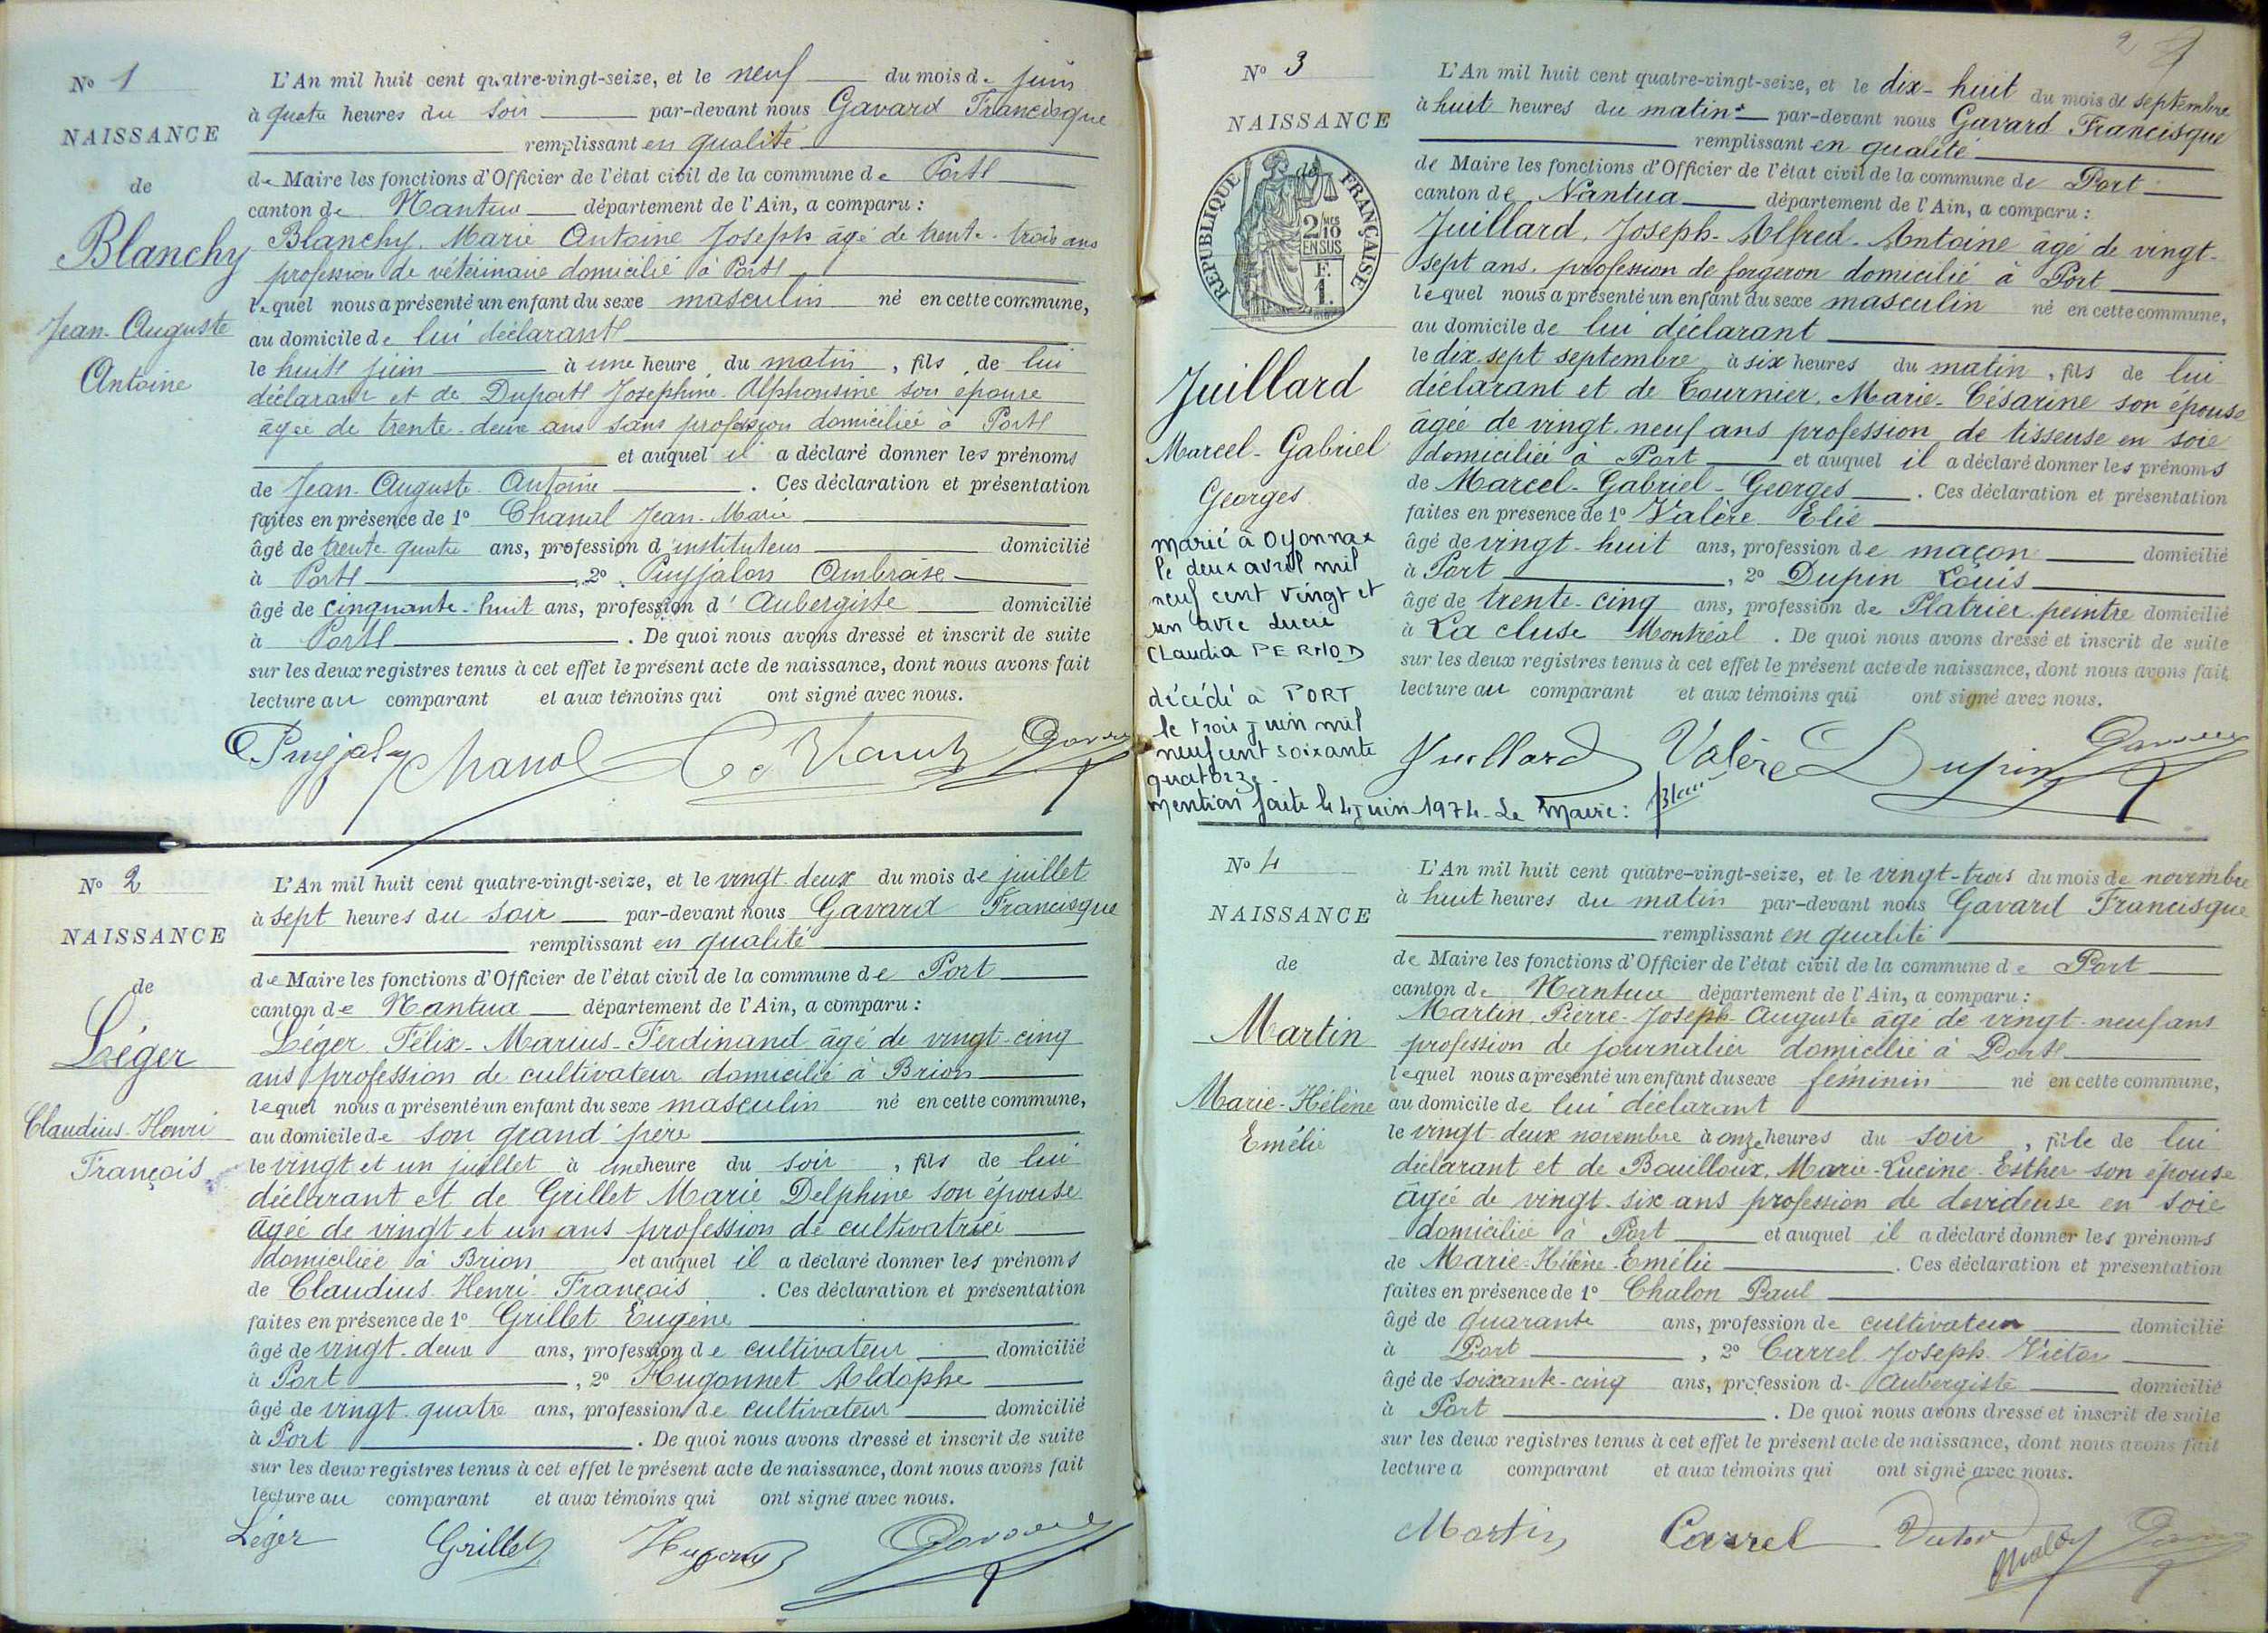 N° 1
NAISSANCE
de
Blanchy
Jean-Auguste
Antoine
L'An mil huit cent quatre-vingt-seize, et le neuf du mois de juin
à quatre heures du soir par-devant nous Gavard Francisque
remplissant en qualité
de Maire les fonctions d'Officier de l'état civil de la commune de Port
canton de Nantua département de l'Ain, a comparu :
Blanchy, Marie Antoine Joseph âgé de trente-trois ans
profession de vétérinaire domicilié à Port
lequel nous a présenté un enfant du sexe masculin né en cette commune,
au domicile de lui déclarant
le huit juin à une heure du matin, fils de lui
déclarant et de Duport Josephine Alphonsine son épouse
âgée de trente-deux ans sans profession domiciliée à Port
et auquel il a déclaré donner les prénoms
de Jean-Auguste Antoine. Ces déclaration et présentation
faites en présence de 1° Chanal Jean-Marie
âgé de trente-quatre ans, profession d'instituteur domicilié
à Port, 2° Puyjalon Ambroise
âgé de cinquante-huit ans, profession d'Aubergiste domicilié
à Port. De quoi nous avons dressé et inscrit de suite
sur les deux registres tenus à cet effet le présent acte de naissance, dont nous avons fait
lecture au comparant et aux témoins qui ont signé avec nous.
Puyjalon Chanal
N° 2
NAISSANCE
de
Léger
Claudius-Henri
François
L'An mil huit cent quatre-vingt-seize, et le vingt deux du mois de juillet
à sept heures du soir par-devant nous Gavard Francisque
remplissant en qualité
de Maire les fonctions d'Officier de l'état civil de la commune de Port
canton de Nantua département de l'Ain, a comparu :
Léger Félix-Marius-Ferdinand âgé de vingt-cinq
ans profession de cultivateur domicilié à Brion
lequel nous a présenté un enfant du sexe masculin né en cette commune,
au domicile de son grand'père
le vingt et un juillet à une heure du soir, fils de lui
déclarant et de Grillet Marie Delphine son épouse
âgée de vingt et un ans profession de cultivatrice
domiciliée à Brion et auquel il a déclaré donner les prénoms
de Claudius Henri François. Ces déclaration et présentation
faites en présence de 1° Grillet Eugène
âgé de vingt-deux ans, profession de cultivateur domicilié
à Port, 2° Hugonnet Aldophe
âgé de vingt-quatre ans, profession de cultivateur domicilié
à Port. De quoi nous avons dressé et inscrit de suite
sur les deux registres tenus à cet effet le présent acte de naissance, dont nous avons fait
lecture au comparant et aux témoins qui ont signé avec nous.
Léger Grillet
2
N° 3
NAISSANCE
de
RÉPUBLIQUE FRANÇAISE
2/10 EN SUS
F. 1.
Juillard
Marcel-Gabriel
Georges
marié à Oyonnax
le deux avril mil
neuf cent vingt et
un avec Lucie
Claudia PERNOD
décédé à PORT
le trois juin mil
neuf cent soixante
quatorze.
mention faite le 4 juin 1974. Le Maire :
L'An mil huit cent quatre-vingt-seize, et le dix-huit du mois de septembre
à huit heures du matin par-devant nous Gavard Francisque
remplissant en qualité
de Maire les fonctions d'Officier de l'état civil de la commune de Port
canton de Nantua département de l'Ain, a comparu :
Juillard, Joseph-Alfred-Antoine âgé de vingt-
sept ans, profession de forgeron domicilié à Port
lequel nous a présenté un enfant du sexe masculin né en cette commune,
au domicile de lui déclarant
le dix-sept septembre à six heures du matin, fils de lui
déclarant et de Tournier, Marie-Césarine son épouse
âgée de vingt-neuf ans profession de tisseuse en soie
domiciliée à Port et auquel il a déclaré donner les prénoms
de Marcel-Gabriel-Georges. Ces déclaration et présentation
faites en présence de 1° Valère Elie
âgé de vingt-huit ans, profession de maçon domicilié
à Port, 2° Dupin Louis
âgé de trente-cinq ans, profession de Platrier peintre domicilié
à La cluse Montréal. De quoi nous avons dressé et inscrit de suite
sur les deux registres tenus à cet effet le présent acte de naissance, dont nous avons fait
lecture au comparant et aux témoins qui ont signé avec nous.
Juillard Valère Dupin
N° 4
NAISSANCE
de
Martin
Marie-Hélène
Emélie
L'An mil huit cent quatre-vingt-seize, et le vingt-trois du mois de novembre
à huit heures du matin par-devant nous Gavard Francisque
remplissant en qualité
de Maire les fonctions d'Officier de l'état civil de la commune de Port
canton de Nantua département de l'Ain, a comparu :
Martin, Pierre-Joseph-Auguste âgé de vingt-neuf ans
profession de journalier domicilié à Port
lequel nous a présenté un enfant du sexe féminin né en cette commune,
au domicile de lui déclarant
le vingt-deux novembre à onze heures du soir, fille de lui
déclarant et de Bouilloux, Marie-Lucine-Esther son épouse
âgée de vingt-six ans profession de devideuse en soie
domiciliée à Port et auquel il a déclaré donner les prénoms
de Marie-Hélène-Emélie. Ces déclaration et présentation
faites en présence de 1° Chalon Paul
âgé de quarante ans, profession de cultivateur domicilié
à Port, 2° Carrel Joseph Victor
âgé de soixante-cinq ans, profession d'Aubergiste domicilié
à Port. De quoi nous avons dressé et inscrit de suite
sur les deux registres tenus à cet effet le présent acte de naissance, dont nous avons fait
lecture a comparant et aux témoins qui ont signé avec nous.
Martin Carrel Victor